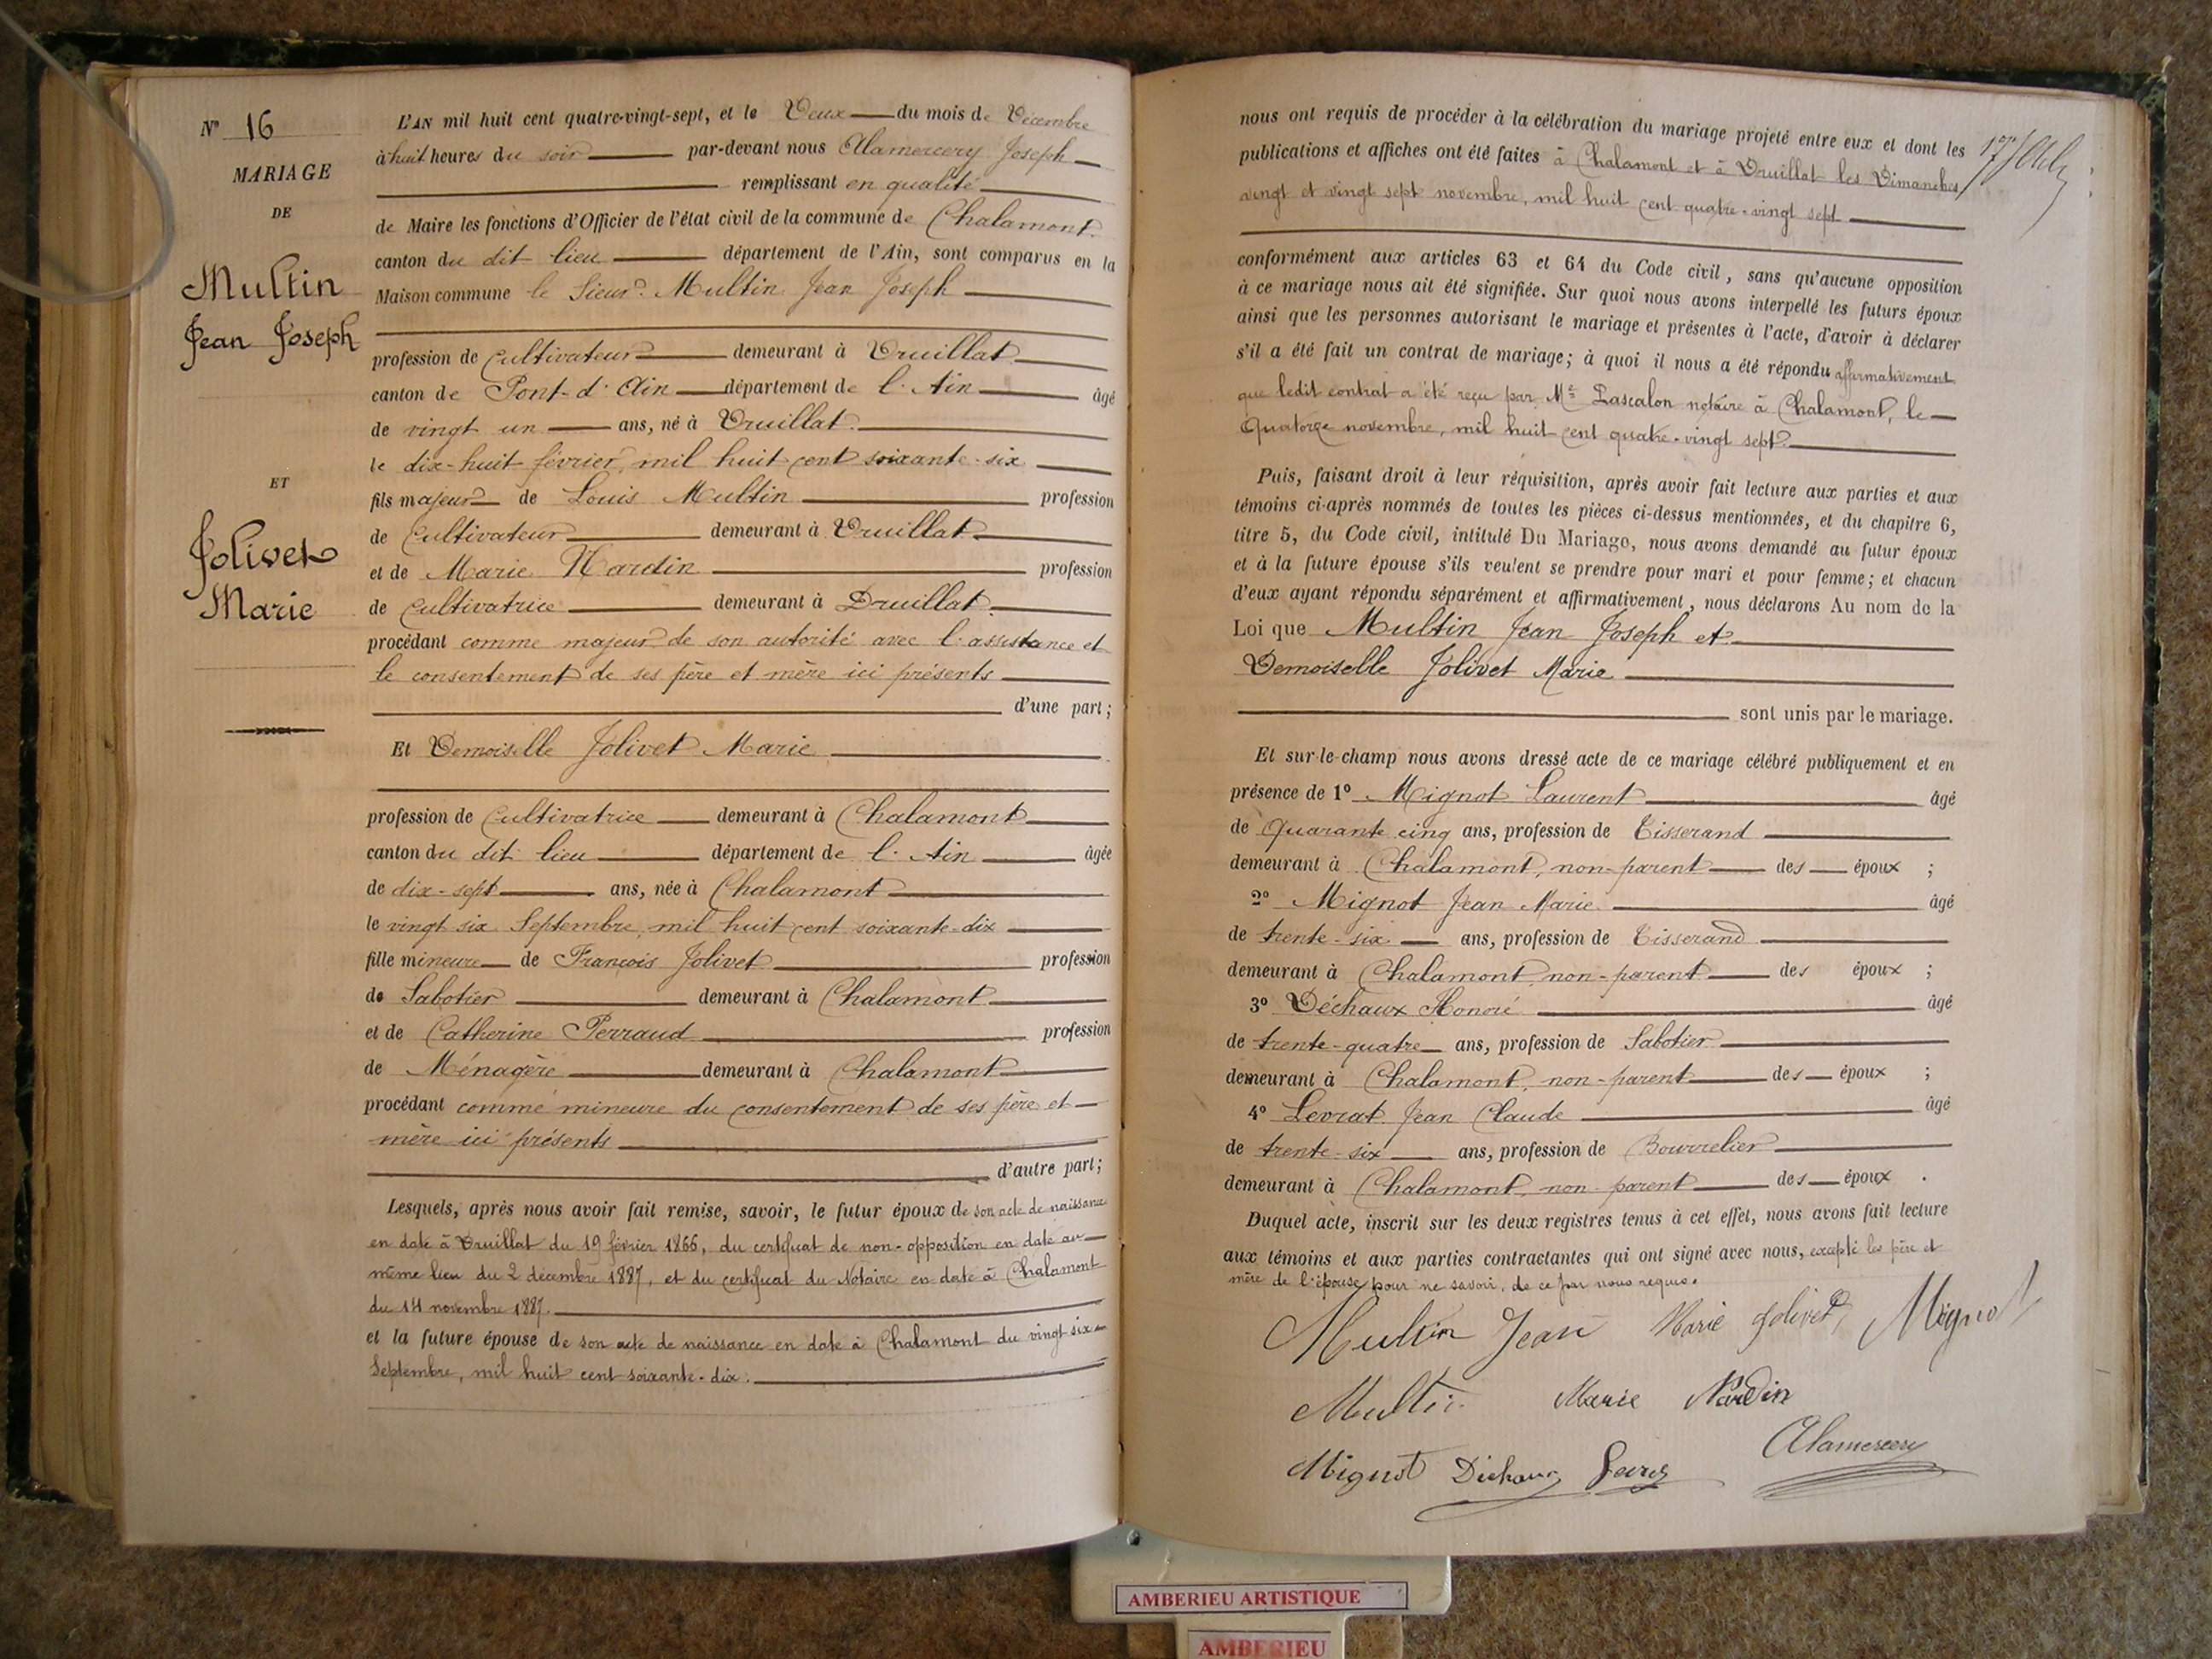 N° 16
MARIAGE
DE
Multin
Jean Joseph
ET
Jolivet
Marie
L'AN mil huit cent quatre-vingt-sept, et le Deux du mois de Décembre
à huit heures du soir par-devant nous Alamercery Joseph
remplissant en qualité
de Maire les fonctions d'Officier de l'état civil de la commune de Chalamont
canton du dit lieu département de l'Ain, sont comparus en la
Maison commune le Sieur Multin Jean Joseph
profession de Cultivateur demeurant à Druillat
canton de Pont-d'Ain département de l'Ain âgé
de vingt un ans, né à Druillat
le dix-huit février, mil huit cent soixante-six
fils majeur de Louis Multin profession
de Cultivateur demeurant à Druillat
et de Marie Nardin profession
de Cultivatrice demeurant à Druillat
procédant comme majeur de son autorité avec l'assistance et
le consentement de ses père et mère ici présents
d'une part;
Et Demoiselle Jolivet Marie
profession de Cultivatrice demeurant à Chalamont
canton du dit lieu département de l'Ain âgée
de dix-sept ans, née à Chalamont
le vingt six Septembre, mil huit cent soixante-dix
fille mineure de François Jolivet profession
de Sabotier demeurant à Chalamont
et de Catherine Perraud profession
de Ménagère demeurant à Chalamont
procédant comme mineure du consentement de ses père et
mère ici présents
d'autre part;
Lesquels, après nous avoir fait remise, savoir, le futur époux de son acte de naissance
en date à Druillat du 19 février 1866, du certificat de non-opposition en date au
même lieu du 2 décembre 1887, et du certificat du Notaire en date à Chalamont
du 14 novembre 1887.
et la future épouse de son acte de naissance en date à Chalamont du vingt six
Septembre, mil huit cent soixante-dix.
nous ont requis de procéder à la célébration du mariage projeté entre eux et dont les
publications et affiches ont été faites à Chalamont et à Druillat les Dimanches
vingt et vingt sept novembre, mil huit cent quatre-vingt sept
conformément aux articles 63 et 64 du Code civil, sans qu'aucune opposition
à ce mariage nous ait été signifiée. Sur quoi nous avons interpellé les futurs époux
ainsi que les personnes autorisant le mariage et présentes à l'acte, d'avoir à déclarer
s'il a été fait un contrat de mariage; à quoi il nous a été répondu affirmativement
que ledit contrat a été reçu par Me Pascalon notaire à Chalamont, le
Quatorze novembre, mil huit cent quatre-vingt sept.
Puis, faisant droit à leur réquisition, après avoir fait lecture aux parties et aux
témoins ci-après nommés de toutes les pièces ci-dessus mentionnées, et du chapitre 6,
titre 5, du Code civil, intitulé Du Mariage, nous avons demandé au futur époux
et à la future épouse s'ils veulent se prendre pour mari et pour femme; et chacun
d'eux ayant répondu séparément et affirmativement, nous déclarons Au nom de la
Loi que Multin Jean Joseph et
Demoiselle Jolivet Marie
sont unis par le mariage.
Et sur-le-champ nous avons dressé acte de ce mariage célébré publiquement et en
présence de 1° Mignot Laurent âgé
de Quarante cinq ans, profession de Tisserand
demeurant à Chalamont, non-parent des époux ;
2° Mignot Jean Marie âgé
de trente-six ans, profession de Tisserand
demeurant à Chalamont, non-parent des époux ;
3° Déchaux Honoré âgé
de trente-quatre ans, profession de Sabotier
demeurant à Chalamont, non-parent des époux ;
4° Levrat Jean Claude âgé
de trente-six ans, profession de Bourrelier
demeurant à Chalamont, non-parent des époux .
Duquel acte, inscrit sur les deux registres tenus à cet effet, nous avons fait lecture
aux témoins et aux parties contractantes qui ont signé avec nous, excepté les père et
mère de l'épouse pour ne savoir, de ce par nous requis.
Multin Jean Marie Jolivet Mignot
Multin Marie Nardin
Alamercery
Mignot Dechaux Levrat
AMBERIEU ARTISTIQUE
AMBERIEU